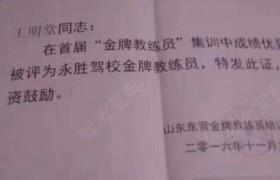 王明堂同志:
在首届“金牌教练员”集训中成绩优
被评为永胜驾校金牌教练员，特发此证，
资鼓励。
山东东营金牌教练员培
二零一六年十一月